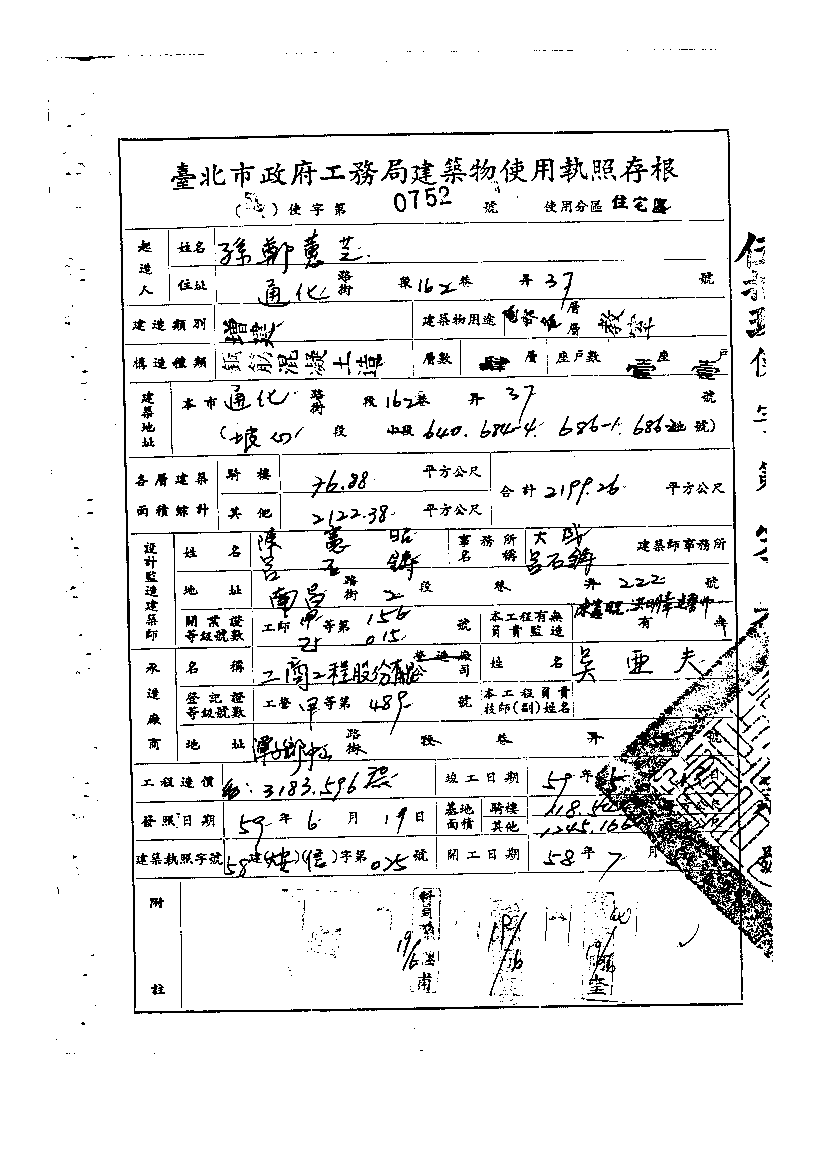 臺北市政府工務局建築物使用執照存根
( ) 使字第 0752 號 使用分區 住宅區
起造人 姓名 孫鄭蕙芝
住址 通化 路街 段 162 巷 弄 37 號
建造類別 增建 建築物用途 層層 教室
構造種類 鋼筋混凝土造 層數 肆 層 座戶數 壹 座 壹 戶
建築地址 本市 通化 路街 段 162 巷 弄 37 號
( 坡心 段 小段 640. 684-4. 686-1. 686-2 地號)
各層建築面積綜計 騎樓 76.88 平方公尺 合計 2199.26 平方公尺
其他 2122.38 平方公尺
設計監造建築師 姓名 陳憲昭 呂石鑄 事務所名稱 大成 呂石鑄 建築師事務所
地址 南昌 路街 2 段 巷 弄 222 號
開業證等級號數 工師 甲 等第 156 015 號 本工程有無負責監造 有 無
承造廠商 名稱 工商工程股份有限公司 營造廠 司 姓名 吳亞夫
登記證等級號數 工營 甲 等第 489 號 本工程負責技師(副)姓名
地址 潭子鄉中山 路街 段 巷 弄 號
工程造價 3183.596 竣工日期 59 年 5 日
發照日期 59 年 6 月 19 日 基地面積 騎樓 118.5
其他 1245.166
建築執照字號 58 建(大安)(信)字第 025 號 開工日期 58 年 7 月
附註 科員 19/6